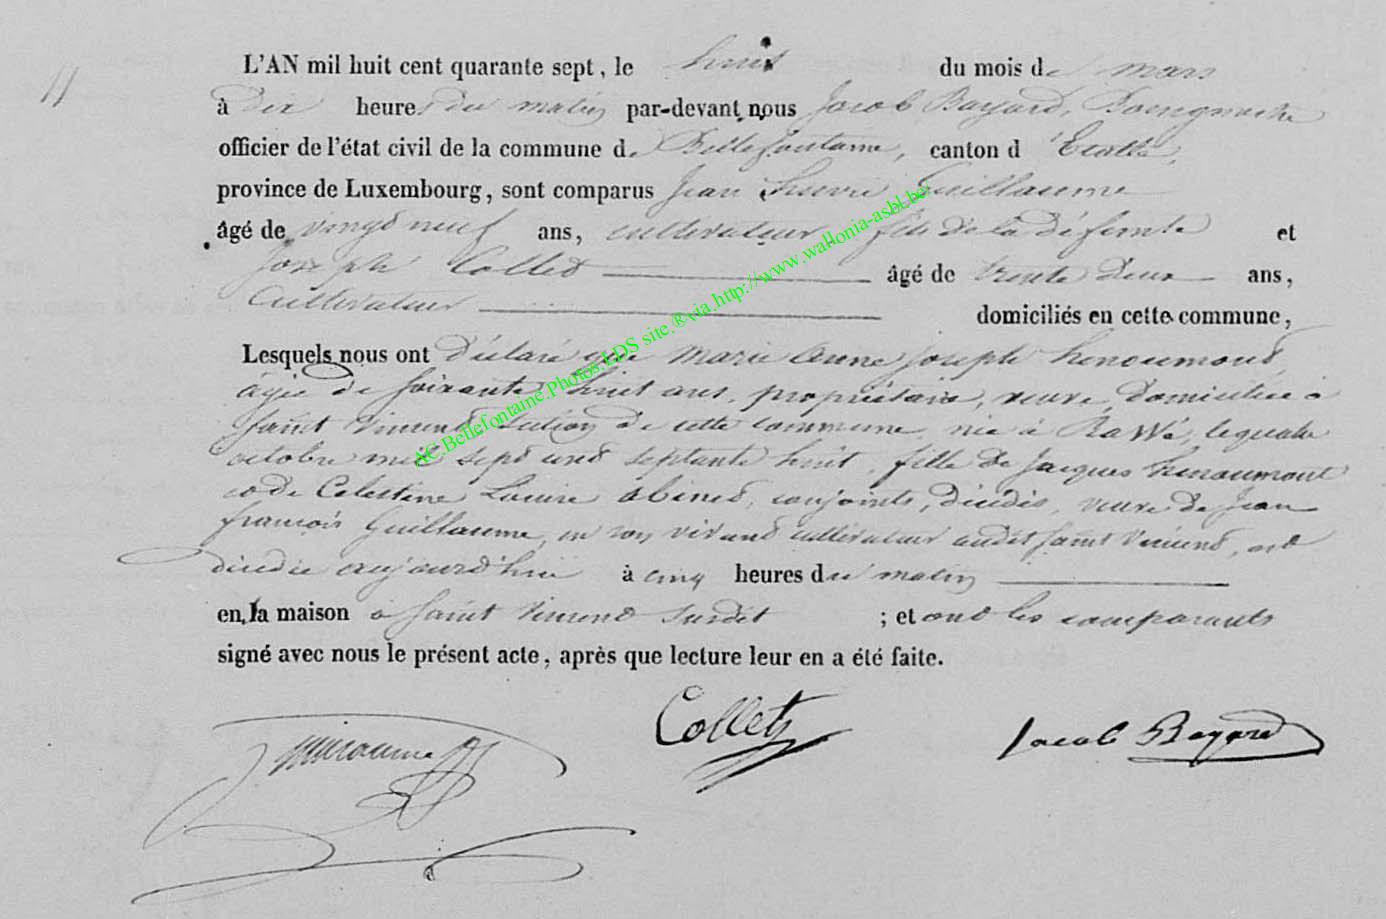 11
L'AN mil huit cent quarante sept, le huit du mois de mars
à dix heures du matin par-devant nous Jacob Bayard, Bourgmestre
officier de l'état civil de la commune de Bellefontaine, canton d'Etalle,
province de Luxembourg, sont comparus Jean Guillaume
âgé de vingt neuf ans, cultivateur fils de la défunte et
Joseph Collet âgé de trente deux ans,
Cultivateur domiciliés en cette commune,
Lesquels nous ont déclaré que Marie Anne Joseph Henoumont
âgée de soixante huit ans, propriétaire, veuve, domiciliée à
Saint Vincent section de cette commune, née à le quatre
octobre mil sept cent septante huit, fille de Jacques Henoumont
et de Celestine conjoints, décédés, veuve de Jean
françois Guillaume, en son vivant cultivateur audit Saint Vincent, est
décédée aujourd'hui à cinq heures du matin
en la maison à Saint Vincent susdit ; et ont les comparants
signé avec nous le présent acte, après que lecture leur en a été faite.
Guillaume Collet Jacob Bayard
AC.Bellefontaine.Photos.LDS site.®via.http://www.wallonia-asbl.be/